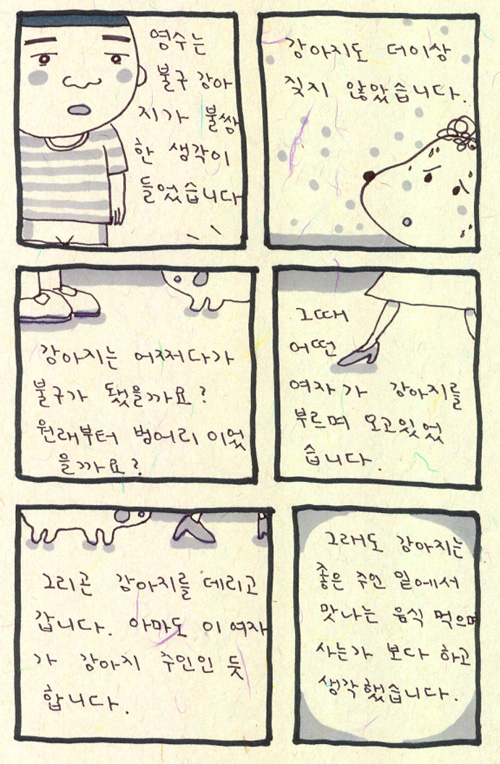 영수는
불구 강아
지가 불쌍
한 생각이
들었습니다
강아지도 더이상
짖지 않았습니다.
강아지는 어쩌다가
불구가 됐을까요?
원래부터 벙어리 이었
을까요?
그때
어떤
여자가 강아지를
부르며 오고있었
습니다.
그리곤 강아지를 데리고
갑니다. 아마도 이 여자
가 강아지 주인인 듯
합니다.
그래도 강아지는
좋은 주인 밑에서
맛나는 음식 먹으며
사는가 보다 하고
생각했습니다.